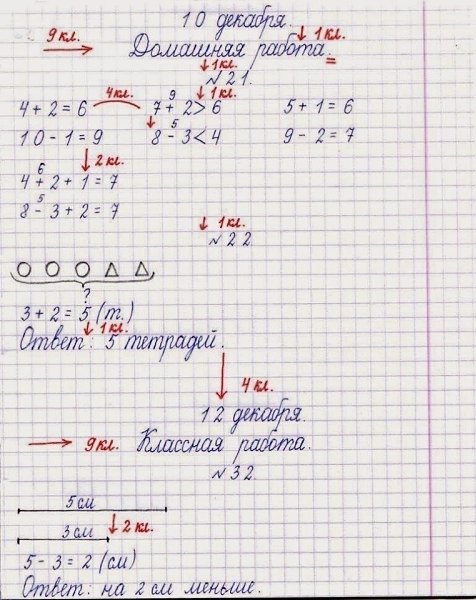 10 декабря.
9 кл. Домашняя работа. 1 кл.
1 кл.
№ 21.
4 кл. 9 1 кл.
4 + 2 = 6 7 + 2 > 6 5 + 1 = 6
5
10 - 1 = 9 8 - 3 < 4 9 - 2 = 7
6 2 кл.
4 + 2 + 1 = 7
5
8 - 3 + 2 = 7
1 кл.
№ 22
?
3 + 2 = 5 (т.)
1 кл.
Ответ: 5 тетрадей.
4 кл.
12 декабря.
9 кл. Классная работа.
№ 32.
5 см
3 см 2 кл.
5 - 3 = 2 (см)
Ответ: на 2 см меньше.